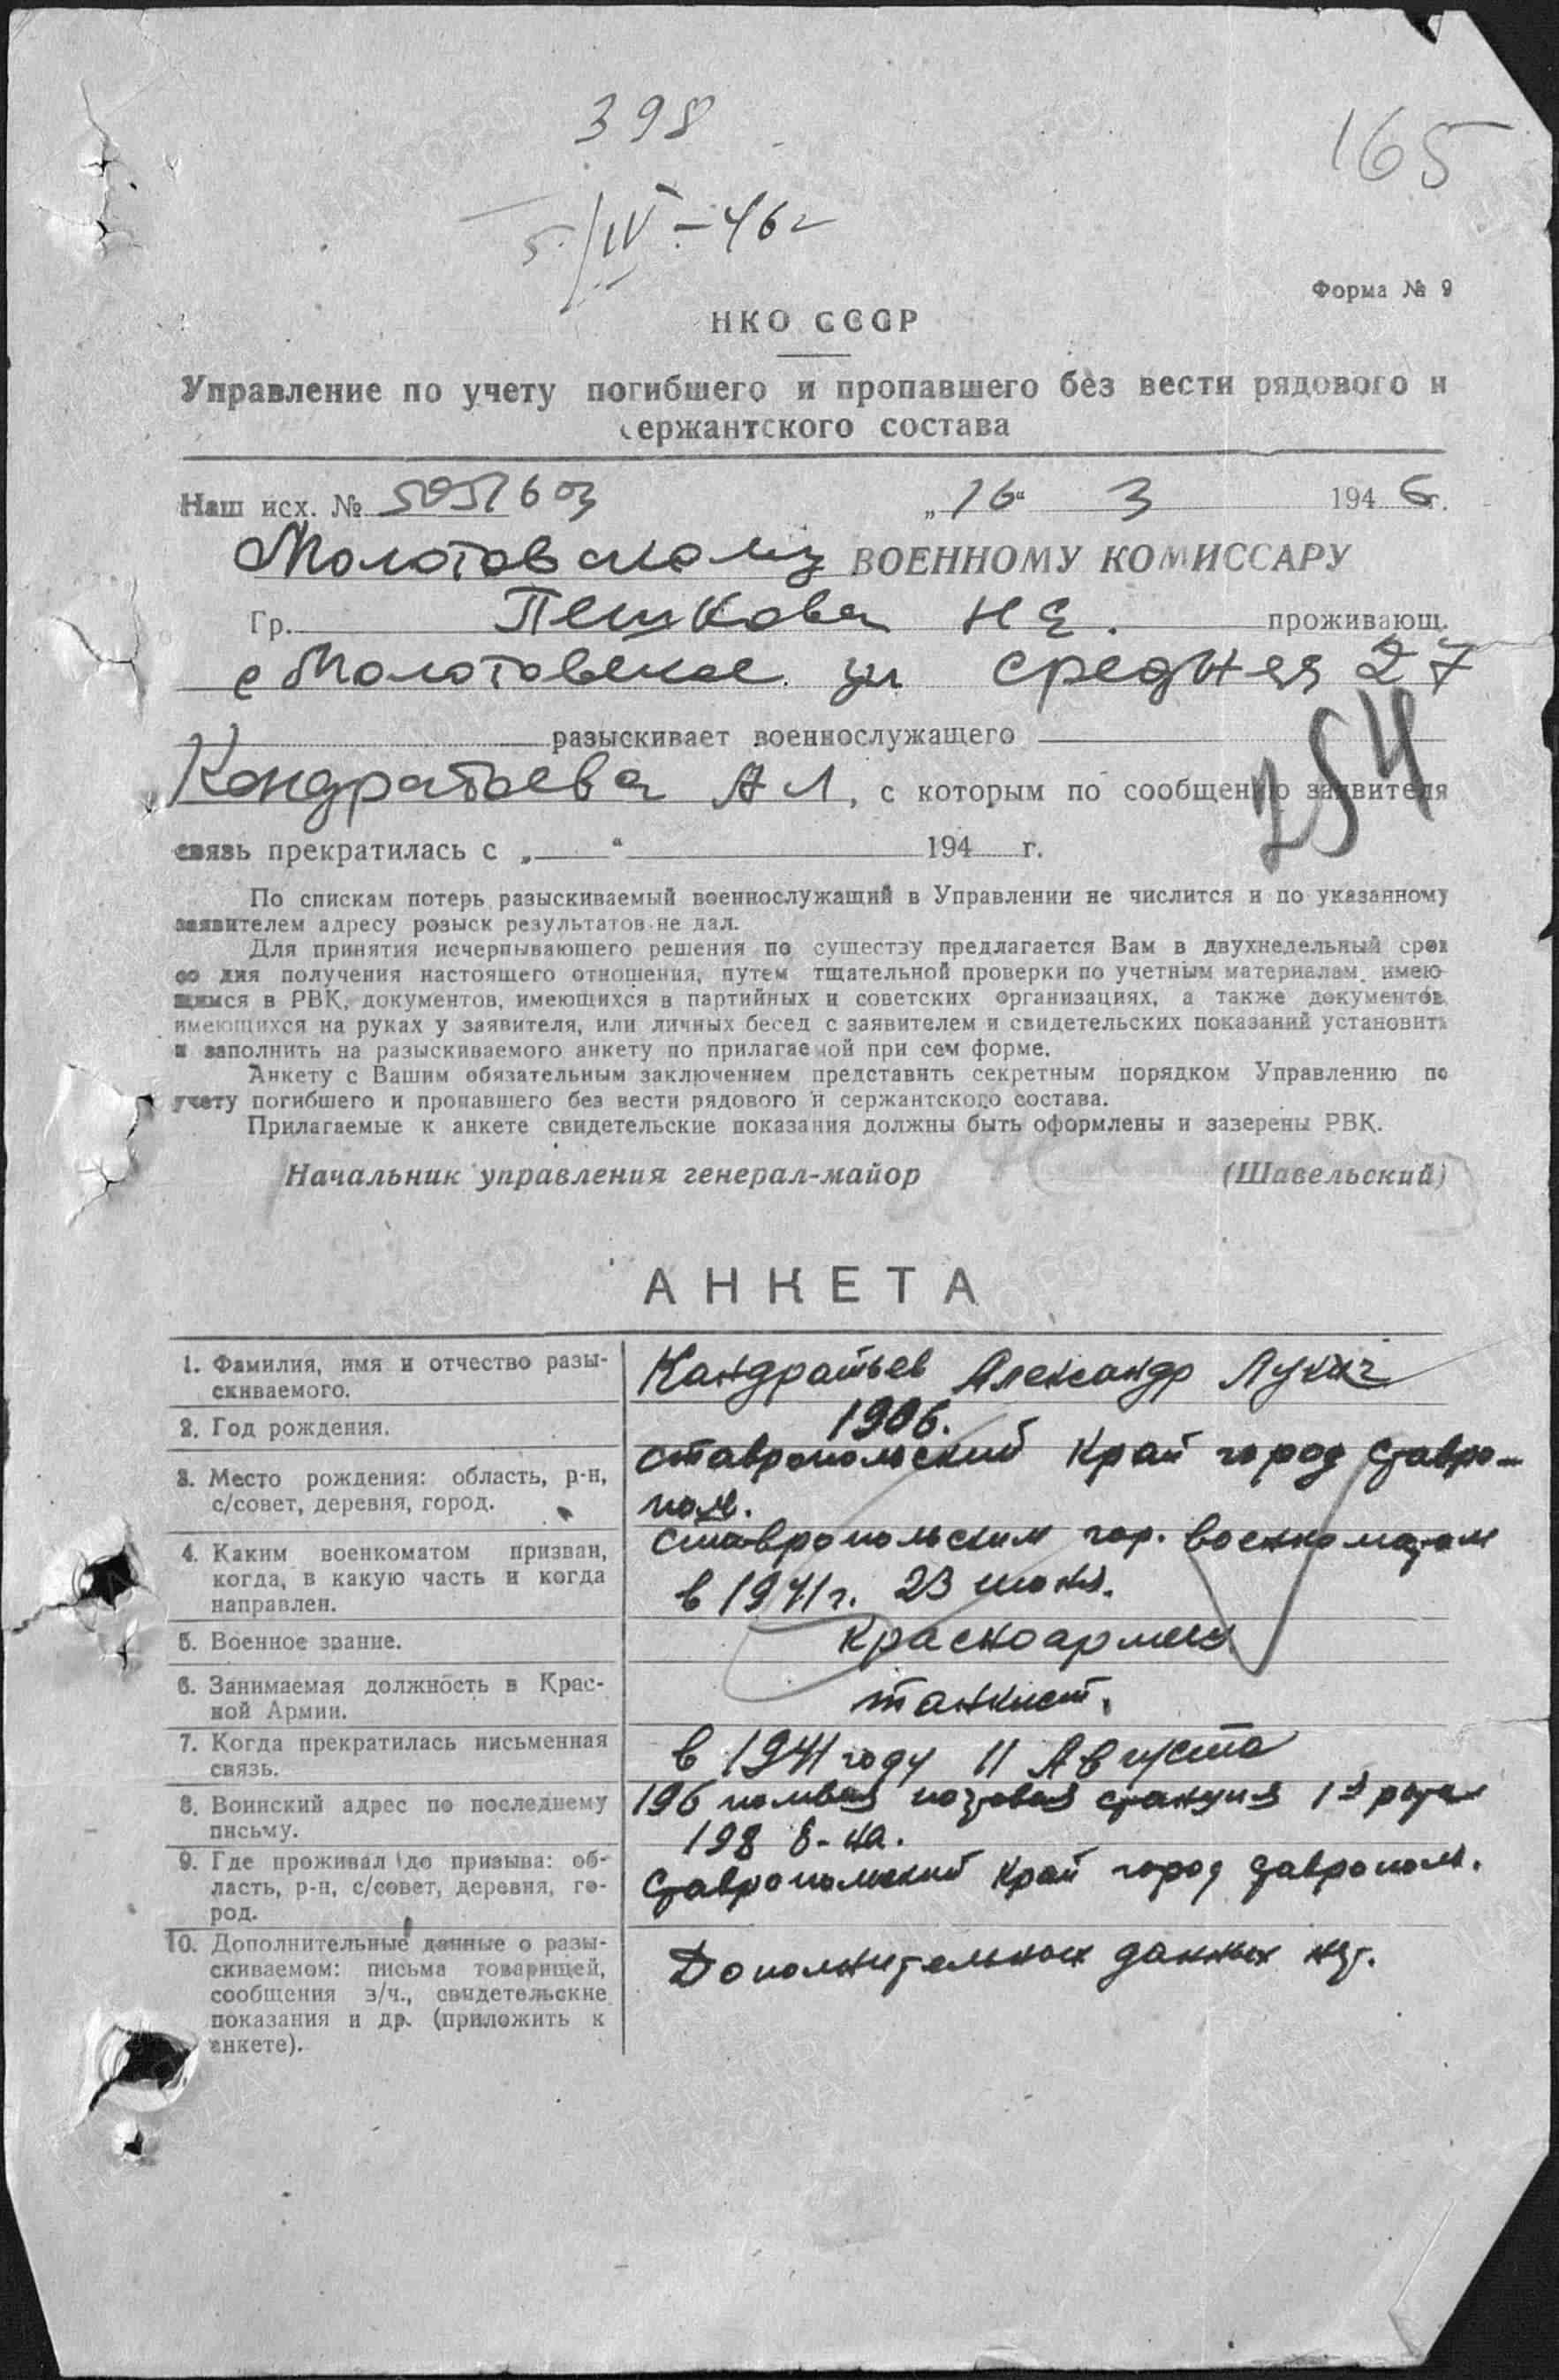 398
165
5/IV-46г
Форма № 9
НКО СССР
Управление по учету погибшего и пропавшего без вести рядового и
сержантского состава
Наш исх. № 5051603 „16“ 3 1946г.
Молотовскому ВОЕННОМУ КОМИССАРУ
Гр. Пешкова Н Е. проживающ.
с Молотовское ул средняя 27
разыскивает военнослужащего
254
Кондратьева А Л, с которым по сообщению заявителя
связь прекратилась с „ “ 194 г.
По спискам потерь разыскиваемый военнослужащий в Управлении не числится и по указанному
заявителем адресу розыск результатов не дал.
Для принятия исчерпывающего решения по существу предлагается Вам в двухнедельный срок
со дня получения настоящего отношения, путем тщательной проверки по учетным материалам, имею-
щимся в РВК, документов, имеющихся в партийных и советских организациях, а также документов,
имеющихся на руках у заявителя, или личных бесед с заявителем и свидетельских показаний установить
и заполнить на разыскиваемого анкету по прилагаемой при сем форме.
Анкету с Вашим обязательным заключением представить секретным порядком Управлению по
учету погибшего и пропавшего без вести рядового и сержантского состава.
Прилагаемые к анкете свидетельские показания должны быть оформлены и заверены РВК.
Начальник управления генерал-майор (Шавельский)
АНКЕТА
1. Фамилия, имя и отчество разы-
скиваемого.
Кандратьев Александр Лукич
2. Год рождения.
1906.
3. Место рождения: область, р-н,
с/совет, деревня, город.
Ставропольский край город Ставро-
поль.
4. Каким военкоматом призван,
когда, в какую часть и когда
направлен.
Ставропольским гор. военкоматом
в 1941г. 23 июня.
5. Военное звание.
Красноармеец
6. Занимаемая должность в Крас-
ной Армии.
танкист.
7. Когда прекратилась письменная
связь.
в 1941 году 11 Августа
8. Воинский адрес по последнему
письму.
196 полевая почтовая станция 1я рота
198 б-на.
9. Где проживал до призыва: об-
ласть, р-н, с/совет, деревня, го-
род.
Ставропольский край город Ставрополь.
10. Дополнительные данные о разы-
скиваемом: письма товарищей,
сообщения з/ч., свидетельские
показания и др. (приложить к
анкете).
Дополнительных данных нет.